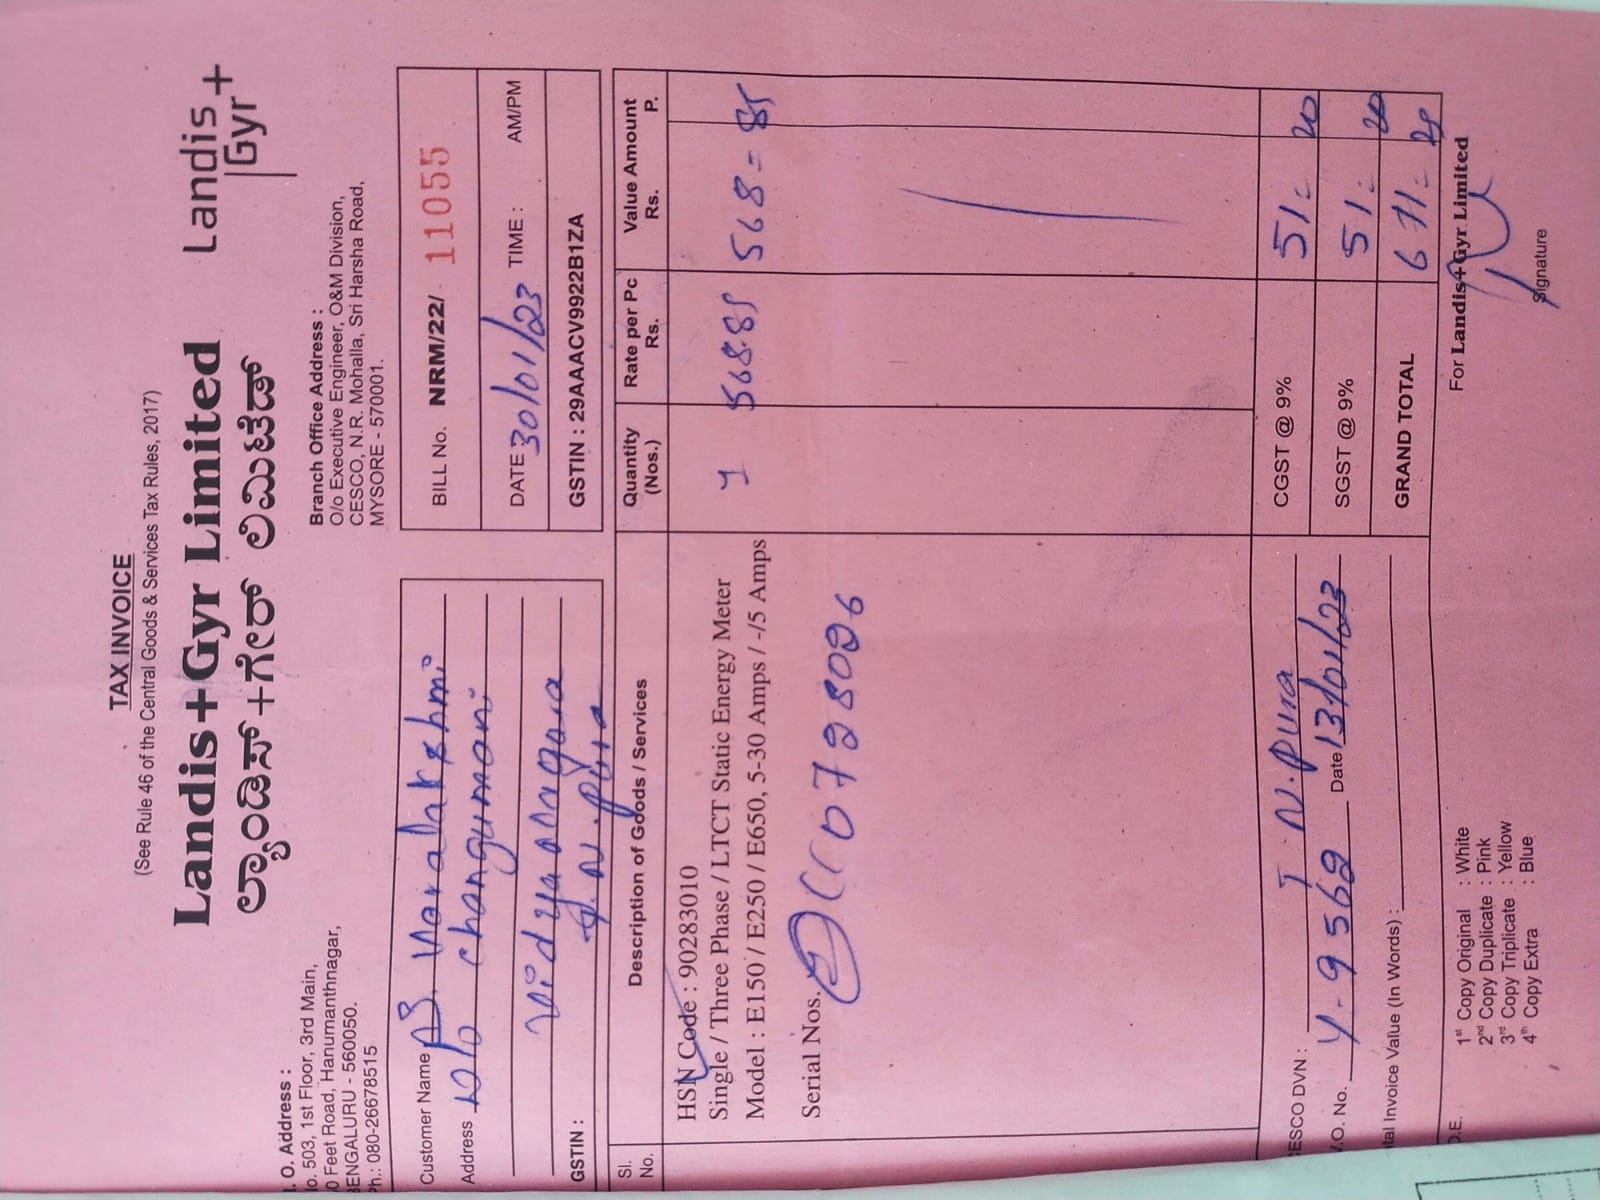 TAX INVOICE
(See Rule 46 of the Central Goods & Services Tax Rules, 2017)
Landis+Gyr Limited
ಲ್ಯಾಂಡಿಸ್+ಗೇರ್ ಲಿಮಿಟೆಡ್
Landis
Gyr+
. O. Address :
o. 503, 1st Floor, 3rd Main,
0 Feet Road, Hanumanthnagar,
BENGALURU - 560050.
Ph.: 080-26678515
Branch Office Address :
O/o Executive Engineer, O&M Division,
CESCO, N.R. Mohalla, Sri Harsha Road,
MYSORE - 570001.
Customer Name B. Varalakshmi
Address W/o Changumani
Vidyanagara
T.N.pura
GSTIN :
BILL No. NRM/22/ 11055
DATE 30/01/23 TIME : AM/PM
GSTIN : 29AAACV9922B1ZA
Sl. No. Description of Goods / Services Quantity (Nos.) Rate per Pc Rs. Value Amount Rs. P.
HSN Code : 90283010
Single / Three Phase / LTCT Static Energy Meter 1 568.85 568=85
Model : E150 / E250 / E650, 5-30 Amps / -/5 Amps
Serial Nos. 0728026
ESCO DVN : T.N.pura
.O. No. Y-9562 Date 13/01/23
tal Invoice Value (In Words) :
CGST @ 9% 51= 20
SGST @ 9% 51= 20
GRAND TOTAL 671= 25
.D.E.
1st Copy Original : White
2nd Copy Duplicate : Pink
3rd Copy Triplicate : Yellow
4th Copy Extra : Blue
For Landis+Gyr Limited
Signature